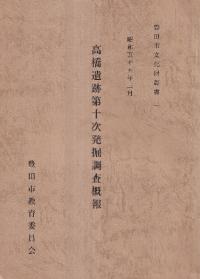 豊田市文化財叢書 一
昭和五十六年一月
高橋遺跡第十次発掘調査概報
豊田市教育委員会